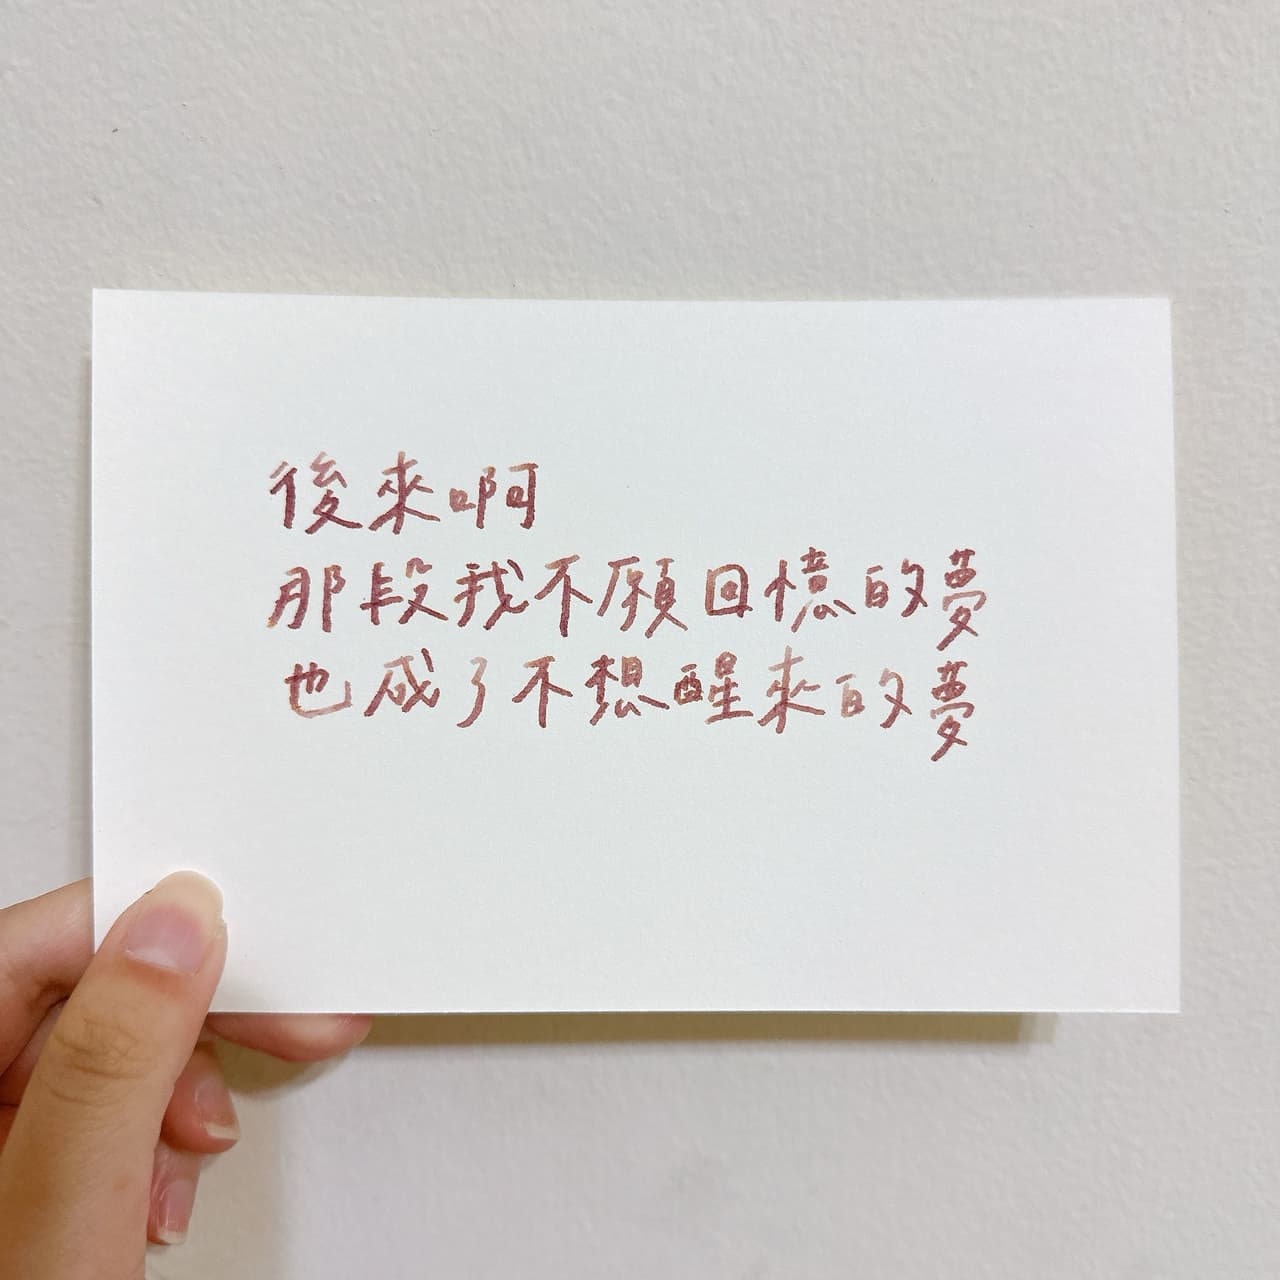 後來啊
那段我不願回憶的夢
也成了不想醒來的夢